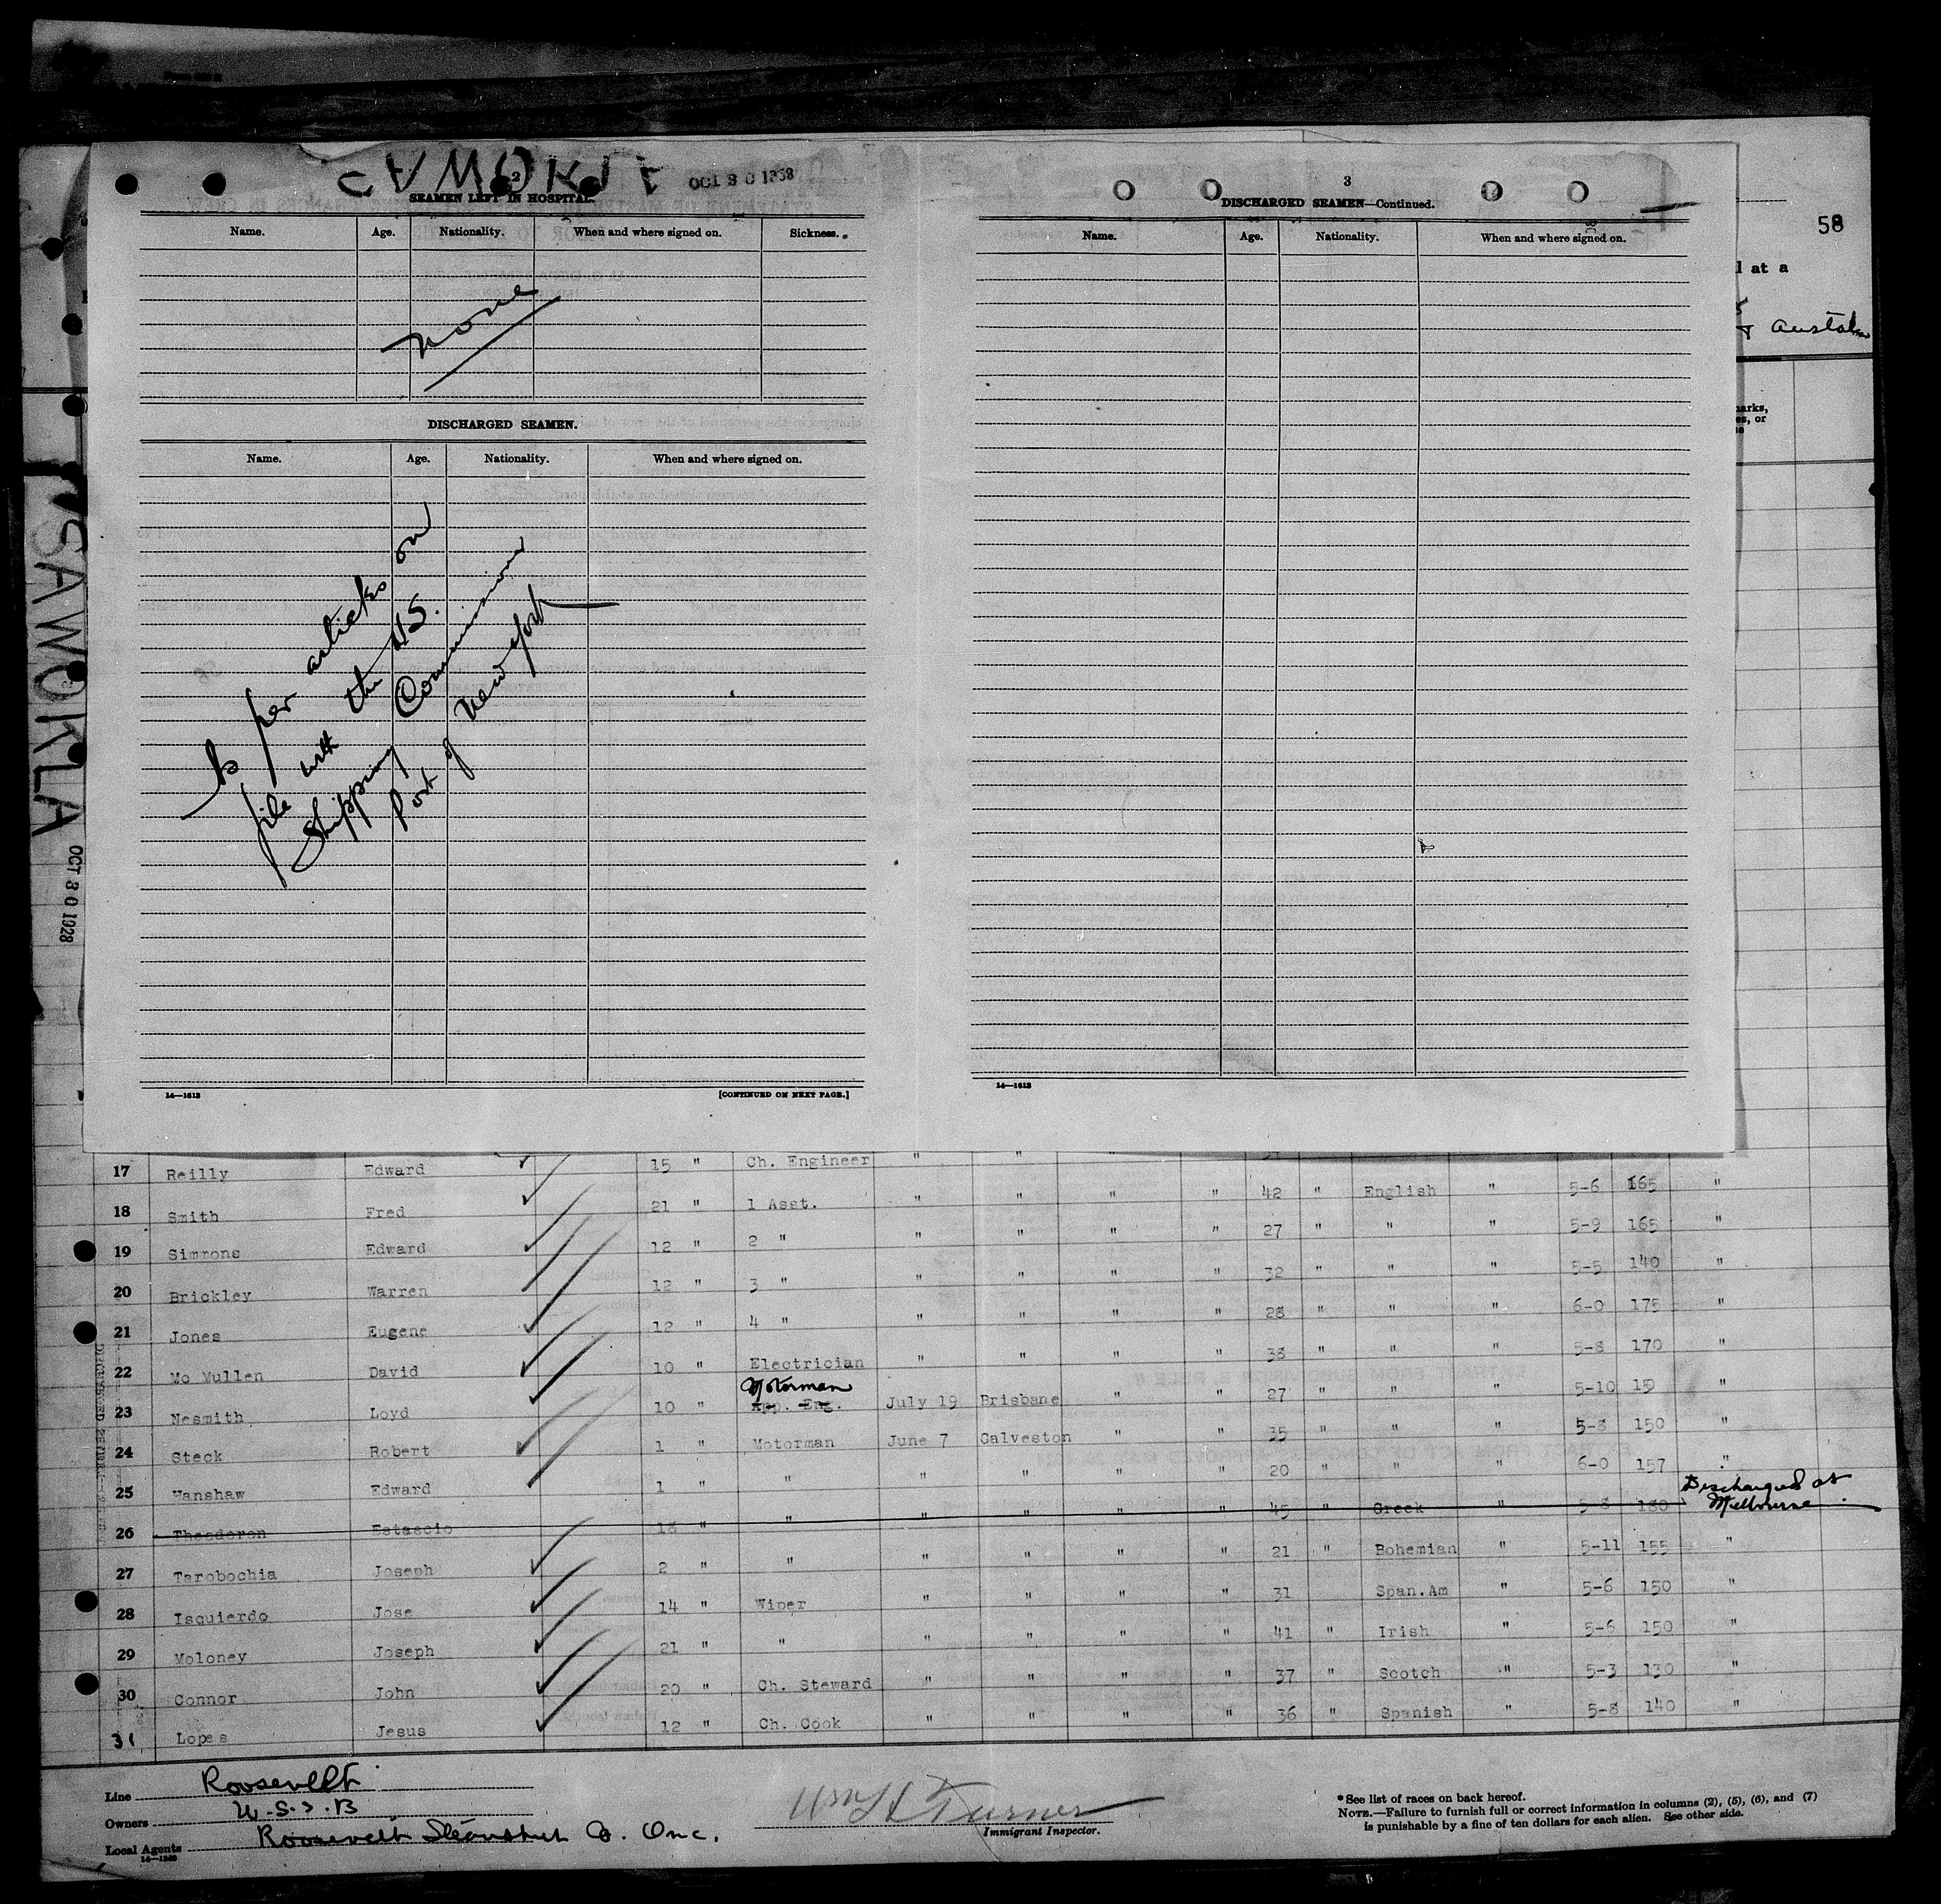 2
OCT 30 1928
SEAMEN LEFT IN HOSPITAL.
Name. Age. Nationality. When and where signed on. Sickness.
none
DISCHARGED SEAMEN.
Name. Age. Nationality. When and where signed on.
As per articles on
file with the U.S.
Shipping Commissioner
Port of New York
14—1613
[CONTINUED ON NEXT PAGE.]
3
DISCHARGED SEAMEN—Continued.
Name. Age. Nationality. When and where signed on.
14—1613
58
l at a
Austral
arks,
es, or
SAWOKLA
OCT 30 1928
17 Reilly Edward 15 " Ch. Engineer " " "
18 Smith Fred 21 " 1 Asst. " " " " 42 " English " 5-6 165 "
19 Simmons Edward 12 " 2 " " " " " 27 " " " 5-9 165 "
20 Brickley Warren 12 " 3 " " " " " 32 " " " 5-5 140 "
21 Jones Eugene 12 " 4 " " " " " 28 " " " 6-0 175 "
22 Mc Mullen David 10 " Electrician " " " " 38 " " " 5-8 170 "
Motorman
23 Nesmith Loyd 10 " App. Eng. July 19 Brisbane " " 27 " " " 5-10 15 "
24 Steck Robert 1 " Motorman June 7 Galveston " " 35 " " " 5-8 150 "
25 Hanshaw Edward 1 " " " " " " 20 " " " 6-0 157 "
26 Theoderon Estascio 18 " " " " " " 45 " Greek " 5-8 180 Discharged at Melbourne.
27 Tarobochia Joseph 2 " " " " " " 21 " Bohemian " 5-11 155 "
28 Isquierdo Jose 14 " Wiper " " " " 31 Span.Am " 5-6 150 "
29 Moloney Joseph 21 " " " " " " 41 " Irish " 5-6 150 "
30 Connor John 20 " Ch. Steward " " " " 37 " Scotch " 5-3 130 "
31 Lopes Jesus 12 " Ch. Cook " " " " 36 " Spanish " 5-8 140 "
Line Roosevelt
Owners U.S.S.B
Local Agents Roosevelt Steamship Co. Inc.
Wm H Turner
Immigrant Inspector.
* See list of races on back hereof.
NOTE.—Failure to furnish full or correct information in columns (2), (5), (6), and (7)
is punishable by a fine of ten dollars for each alien. See other side.